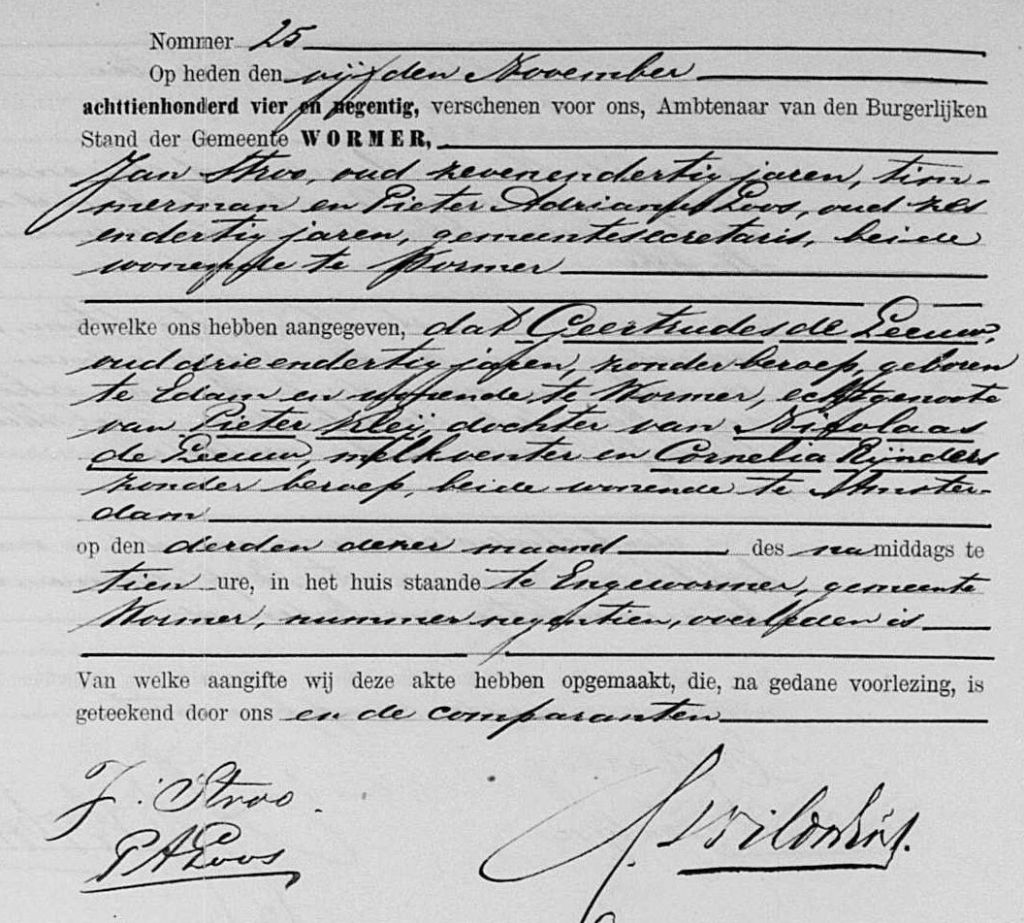 Nommer 25
Op heden den vijfden November
achttienhonderd vier en negentig, verschenen voor ons, Ambtenaar van den Burgerlijken
Stand der Gemeente WORMER,
Jan Stroo, oud zevenendertig jaren, tim-
merman en Pieter Adrianus Loos, oud zes
endertig jaren, gemeentesecretaris, beide
wonende te Wormer
dewelke ons hebben aangegeven, dat Geertrudes de Leeuw,
oud drie endertig jaren, zonder beroep, geboren
te Edam en wonende te Wormer, echtgenoote
van Pieter Kleij, dochter van Nikolaas
de Leeuw, melkventer en Cornelia Rijnders
zonder beroep, beide wonende te Amster-
dam
op den derden dezer maand des namiddags te
tien ure, in het huis staande te Engewormer, gemeente
Wormer, nummer negentien, overleden is
Van welke aangifte wij deze akte hebben opgemaakt, die, na gedane voorlezing, is
geteekend door ons en de comparanten
J. Stroo.
P A Loos